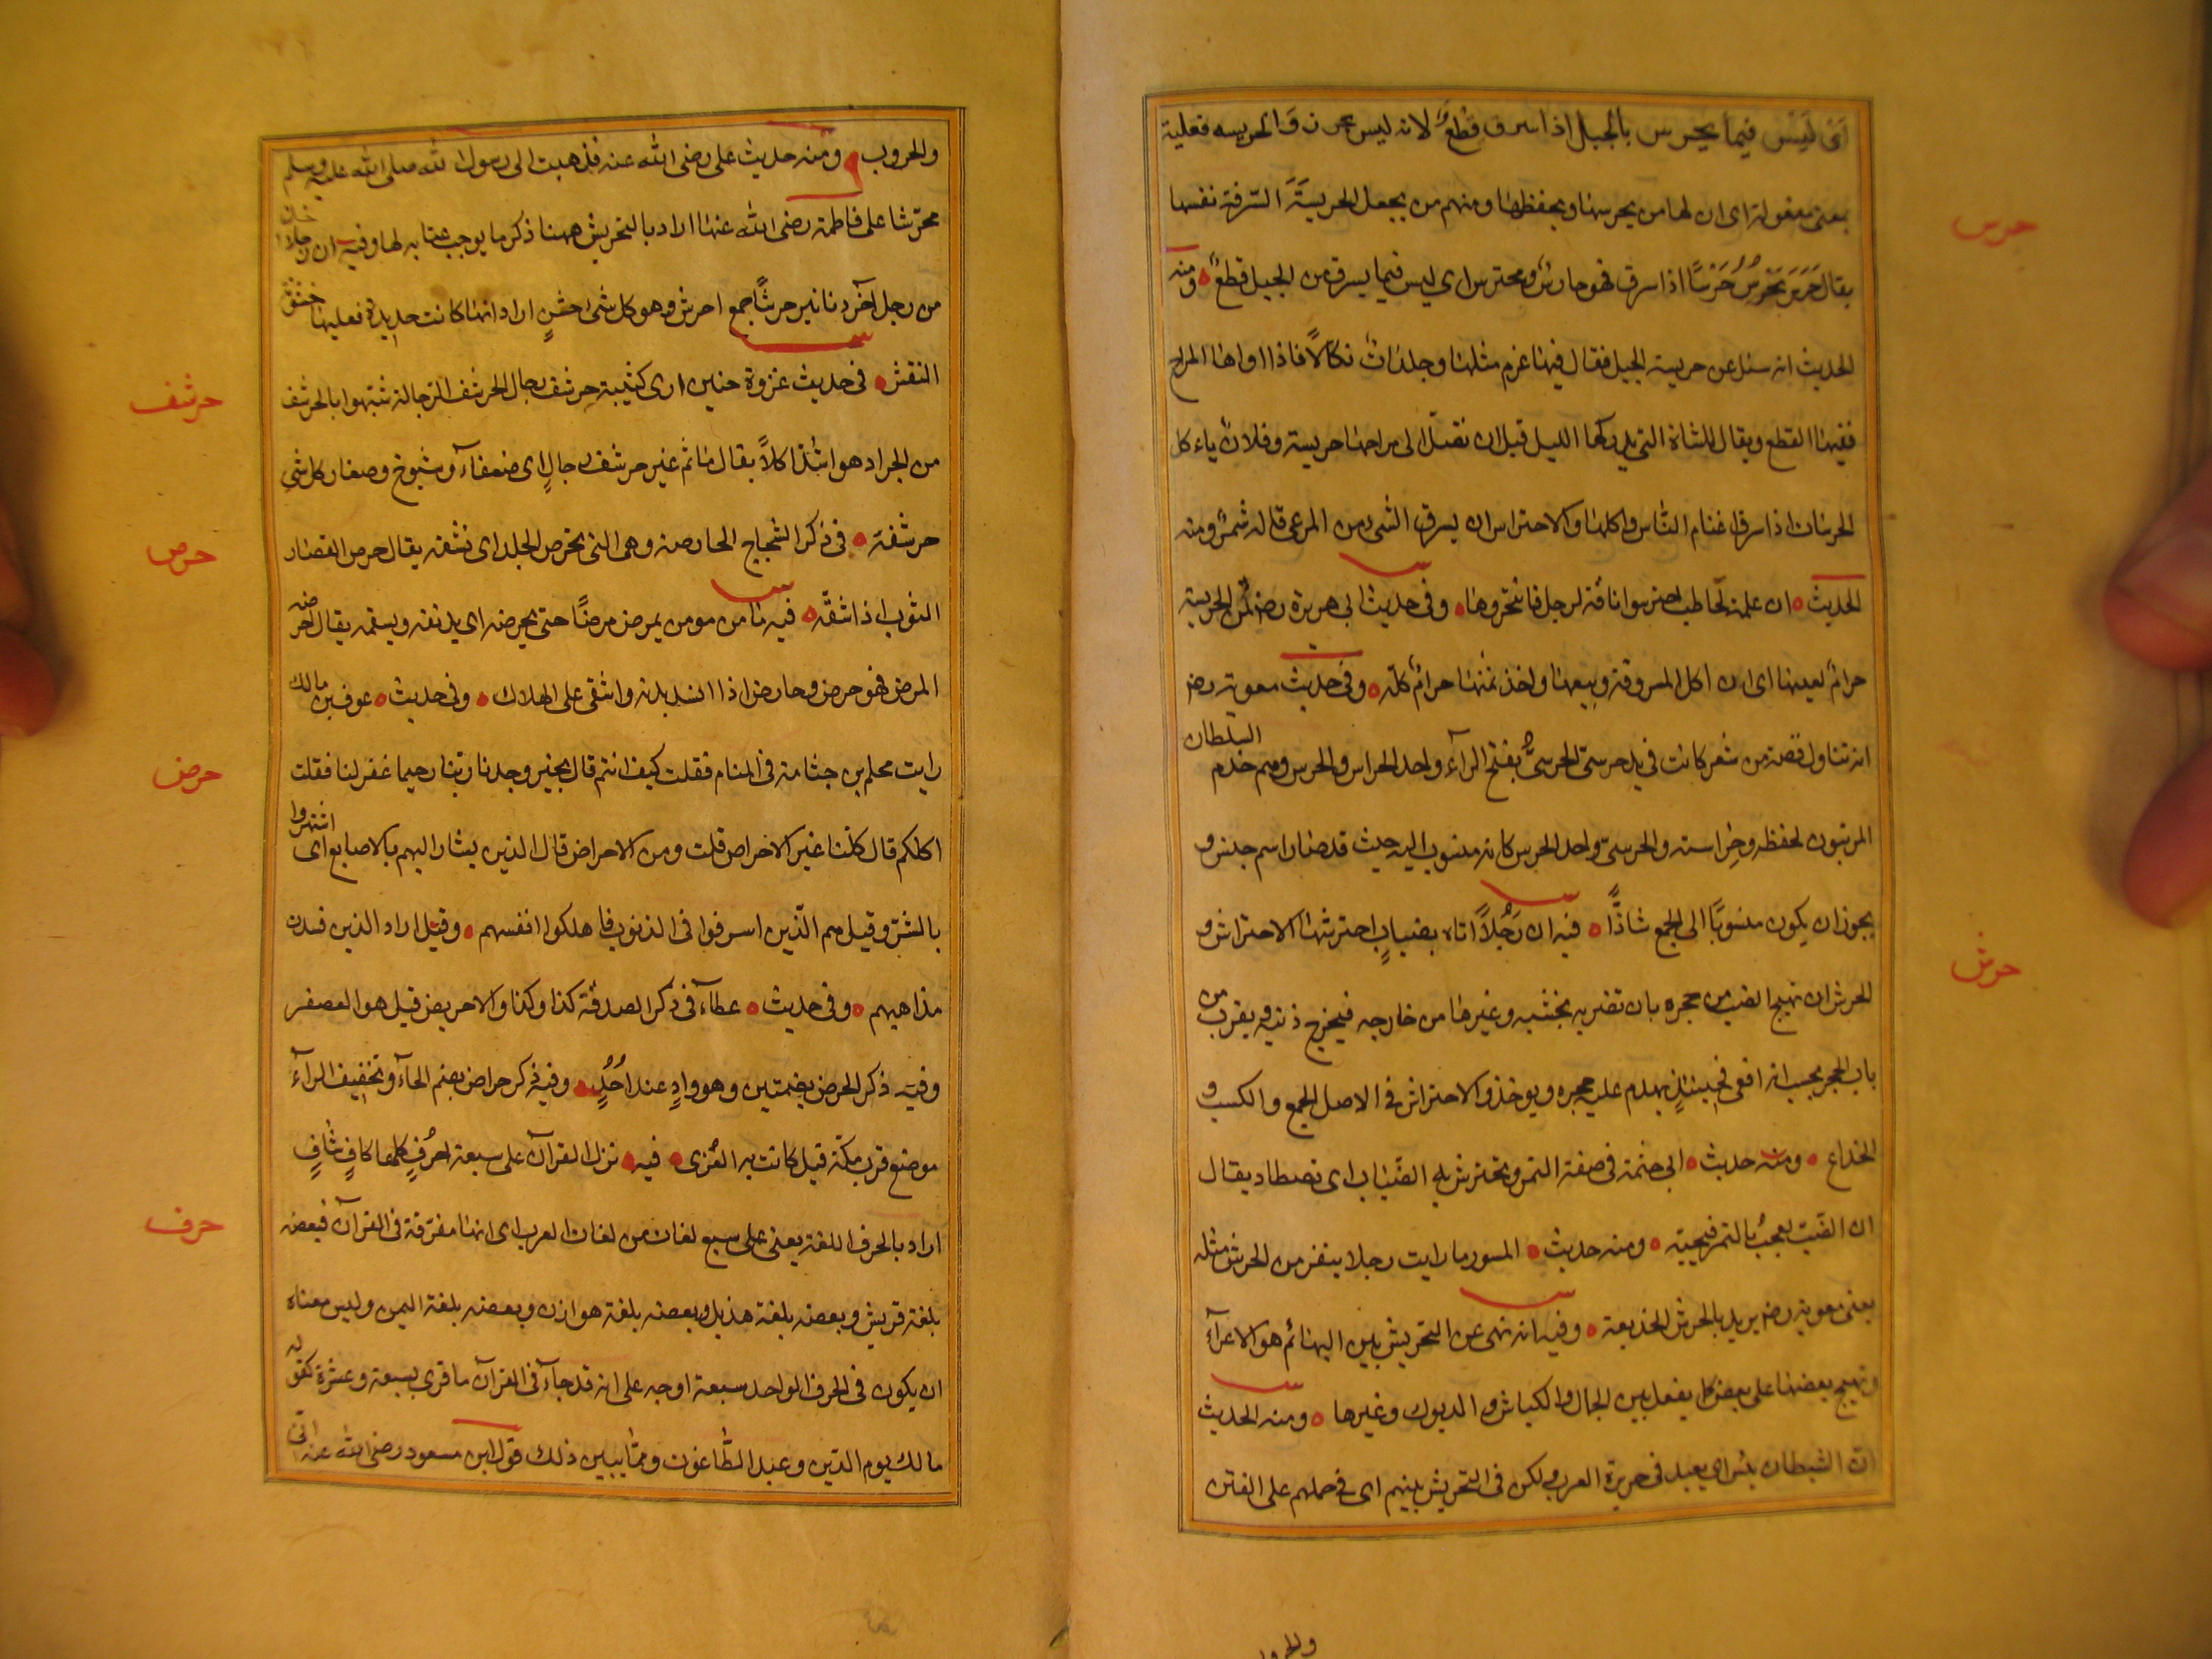 اى ليس فيما يحرس بالجبل اذا سرق قطعٌ لانه ليس بحرز والحريسه فعلية
بمعنى مفعولة اى ان لها من يحرسها ويحفظها ومنهم من يجعل الحريسةَ السّرقة نفسها
حرس
يقال حَرَسَ يَحْرِسُ حَرْسًا اذا سرق فهو حارسٌ ومحترس اى ليس فيما يسرق من الجبل قطعٌ ومنه
الحديث انه سئل عن حريسة الجبل فقال فيها غرم مثلها وجلداتٌ نكالاً فاذا اواها المراح
ففيها القطع ويقال للشاة التى يدركها الليل قبل ان تصل الى مراحها حريسة وفلانٌ ياءكل
الحرسات اذا سرق اغنام النّاس واكلها والاحتراس ان يسرق الشئ من المرعى قاله شمر ومنه
الحديث ان علمة لحاطب احترسوا ناقة لرجل فانتحروها وفى حديث ابى هريرة رضـ ثمن الحريسة
حرامٌ لعينها اى ان اكل المسروقة وبيعها واخذ ثمنها حرامٌ كلّه وفى حديث معوية رضـ
انه تناول قصة من شعر كانت فى يد حرسىّ الحرسىُّ بفتح الرآء واحد الحراس والحرس وهم خدم السلطان
المرتبون لحفظه وحِراسته والحرسىّ واحد الحرس كانه منسوب اليه حيث قد صار اسم جنس و
يجوز ان يكون منسوبًا الى الجمع شاذًّا فيه ان رَجُلاً اتاه بضبابٍ احترشها الاحتراش و
حرش
الحرش ان تهيج الضب من جحره بان تضربه بخشبه وغيرها من خارجه فيخرج ذنبه ويقرب من
باب الجحر يحسب انه افعى فحينئذٍ يهدم عليه جحره ويوخذ والاحتراش فى الاصل الجمع والكسب و
الخداع ومنه حديث ابى حثمة فى صفة التمر وتحترش به الضّباب اى تصطاد يقال
ان الضّبّ يعجبُ بالتمر فيحبّه ومنه حديث المسور ما رايت رجلا ينفر من الحرش مثله
يعنى معوية رضـ يريد بالحرش الخديعة وفيه انه نهى عن التحريش بين البهائم هو الاغرآء
وتهيج بعضها على بعض كما يفعل بين الجمال والكباش و الديوك وغيرها ومنه الحديث
ان الشيطان يئس ان يعبد فى جزيرة العرب ولكن فى التحريش بينهم اى فى حملهم على الفتن
والحروب
والحروب ومنه حديث على رضى الله عنه فذهبت الى رسول الله صلى الله عليه وسلم
محرّشا على فاطمة رضى الله عنها اراد بالتحريش ههنا ذكر ما يوجب عتابه لها وفيه ان رجلا اخذ
من رجل آخر دنانير حرشًا جمع احرش وهو كل شئ خشنٍ اراد انها كانت جديدة فعليها خشنة
النقش فى حديث غزوة حنين ارى كثيبة حرشف رجال الحرشف الرّجالة شبّهوا بالحرشف
حرشف
من الجراد هو اشدّ اكلاً يقال ما ثم غير حرشف رجالٍ اى ضعفآء وشيوخ وصغار كل شئ
حرشفة فى ذكر الشجاج الحارصة وهى التى تحرص الجلد اى تشقه يقال حرص القصار
حرص
الثوب اذا شقّه فيه ما من مومن يمرض مرضًا حتى يحرضه اى يدنفه ويسقمه يقال احرضه
المرض فهو حرض وحارض اذا افسد بدنه واشقى على الهلاك وفى حديث عوف بن مالك
رايت محلم بن جثامة فى المنام فقلت كيف انتم قال بخير وجدنا ربنا رحيما غفر لنا فقلت
حرض
اكلكم قال كلنا غير الاحراض قلت ومن الاحراض قال الذين يشار اليهم بالاصابع اى اشتهروا
بالشرّ وقيل هم الّذين اسرفوا فى الذنوب فاهلكوا انفسهم وقيل اراد الذين فسدت
مذاهبهم وفى حديث عطآء فى ذكر الصدقة كذا وكذا والاحريض قيل هو العصفر
وفيه ذكر الحرض بضمتين وهو وادٍ عند اُحُدٍ وفيه ذكر حراض بضم الحآء وتخفيف الرآء
موضع قرب مكة قيل كانت به العُزى فيه نزل القرآن على سبعة احرُفٍ كلها كافٍ شافٍ
حرف
اراد بالحرف اللغة يعنى على سبع لغات من لغات العرب اى انها مفرقة فى القرآن فبعضه
بلغة قريش وبعضه بلغة هذيل وبعضه بلغة هوازن وبعضه بلغة اليمن وليس معناه
ان يكون فى الحرف الواحد سبعة اوجه على انه قد جآء فى القرآن ما قرى بسبعة وعشرة كقوله
مالك يوم الدّين وعبد الطّاغوت وممّا يبين ذلك قول ابن مسعود رضى الله عنه انّى